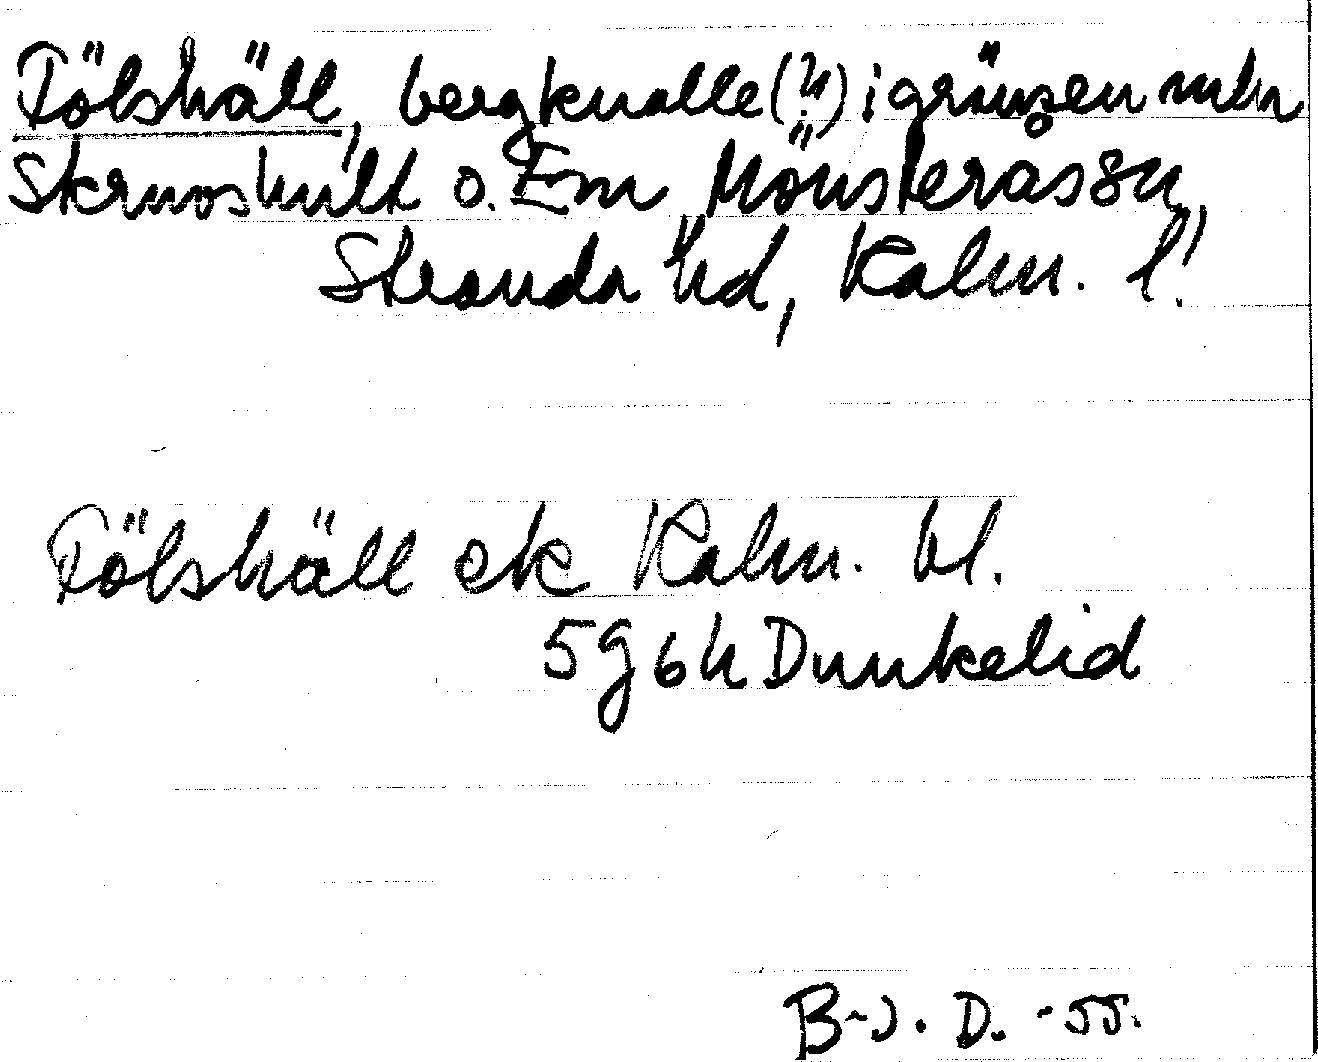 Fölshäll, bergknalle (?) i gränsen mln
Skruvshult o. Em, Mönsterås sn,
Stranda hd, Kalm. l.
Fölshäll ek Kalm. bl.
5g6h Dunkelid
B-J. D. -55.